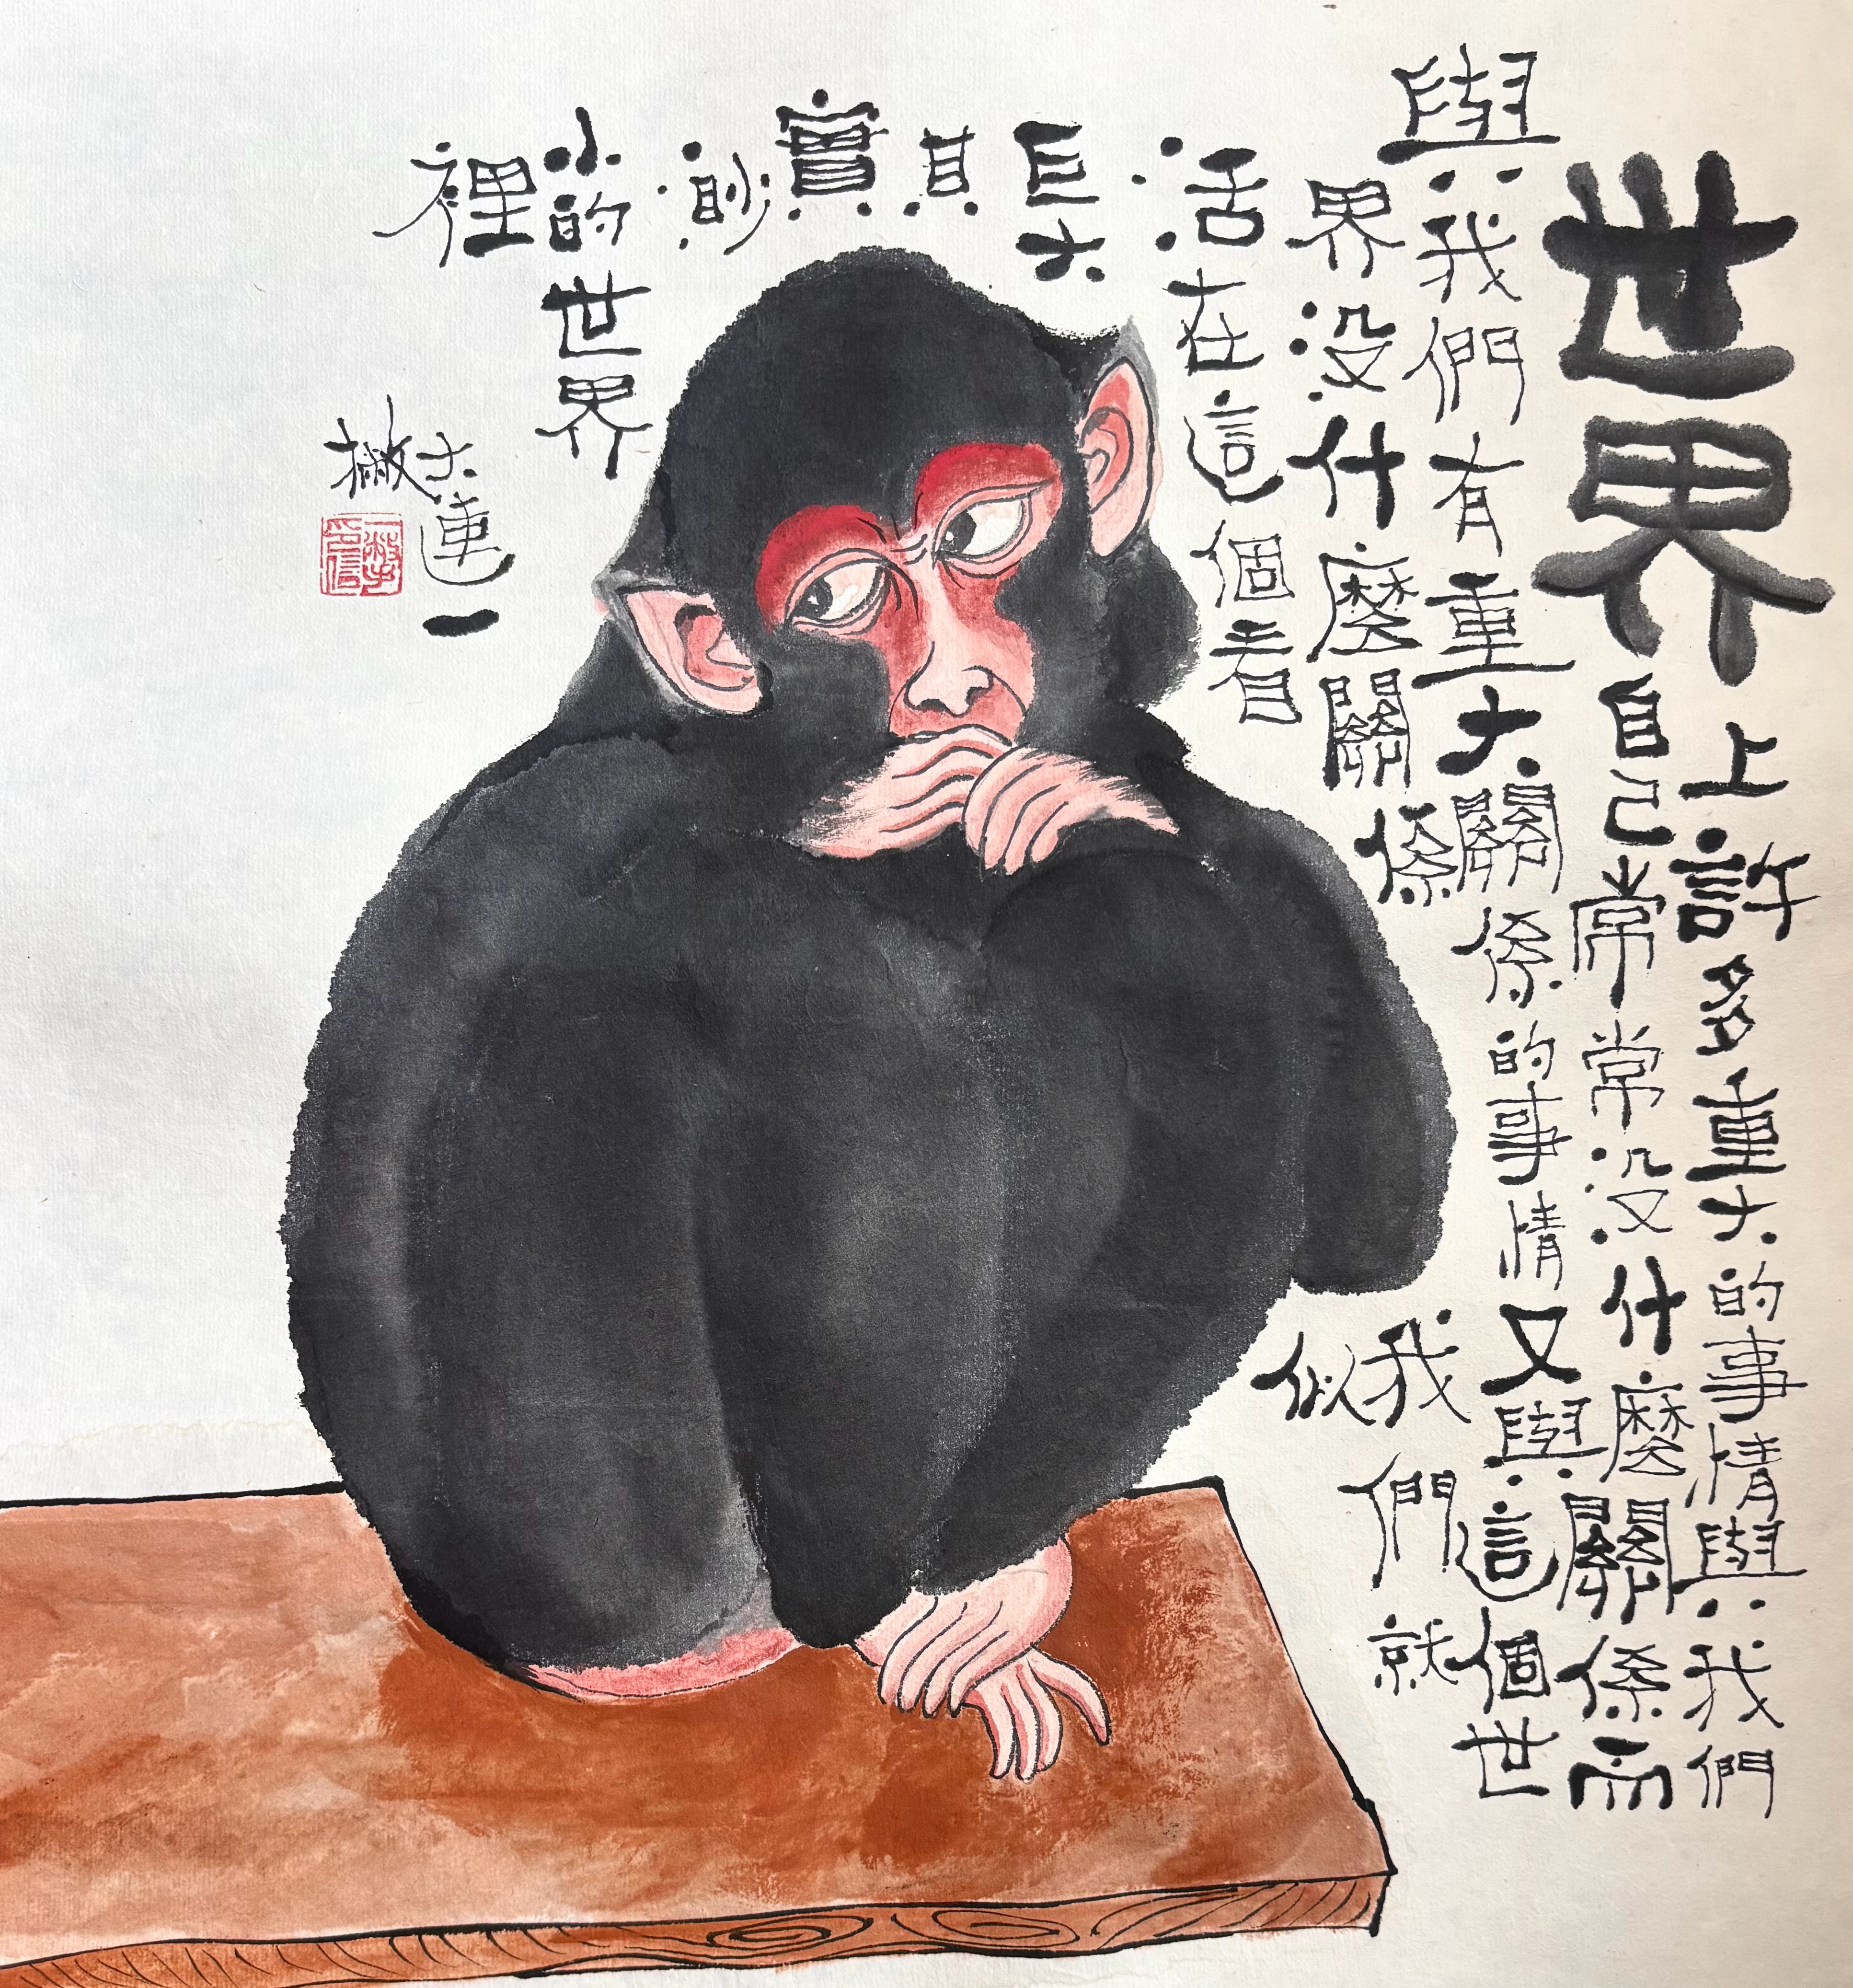 世界
上許多重大的事情與我們
自己常常没什麼關係而
與我們有重大關係的事情又與這個世
界没什麼關係我們就
活在這個看似
巨大
其
實
渺
小的世界
裡
大連一
撇
一撇印信